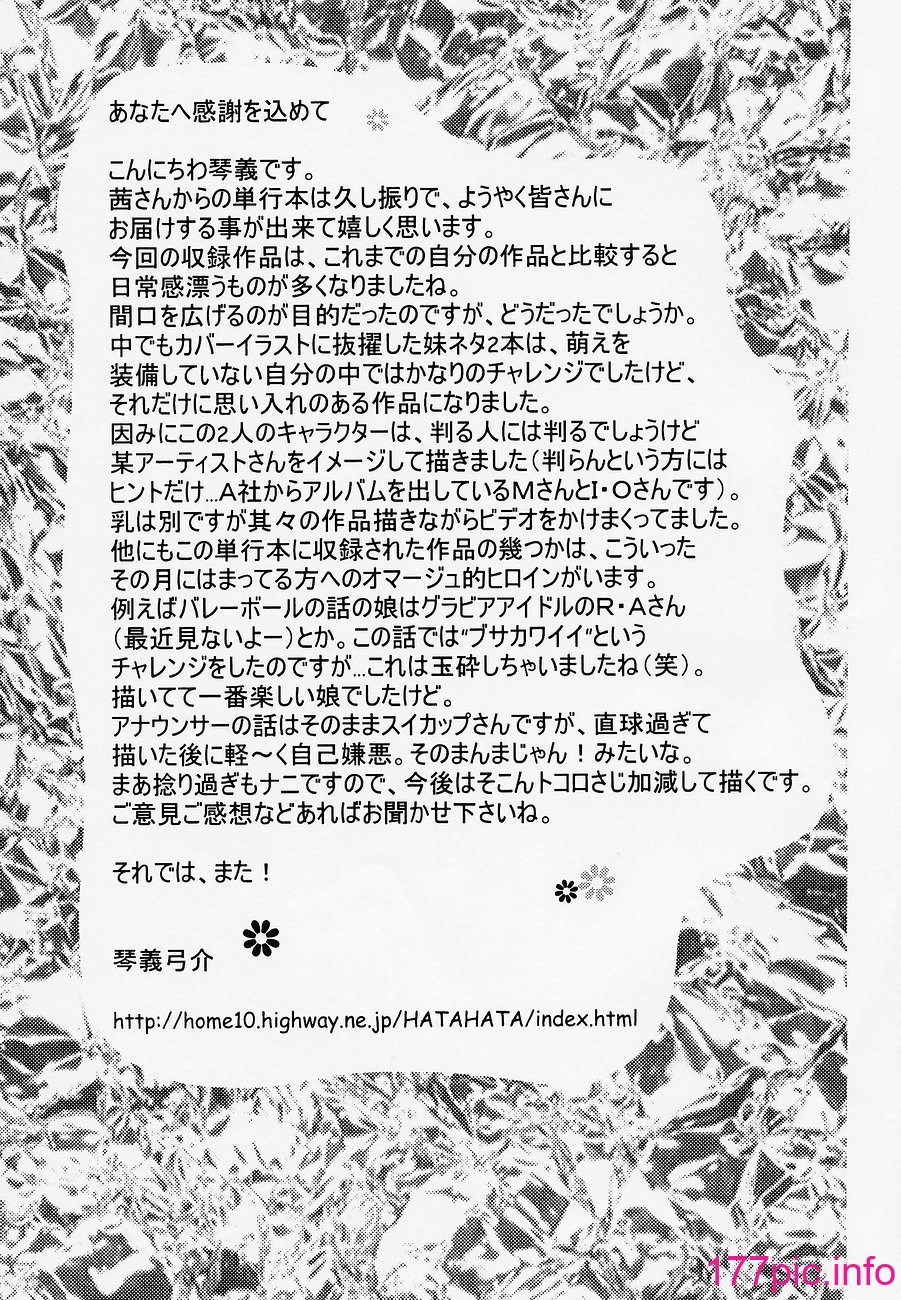 あなたへ感謝を込めて
こんにちわ琴義です。
茜さんからの単行本は久し振りで、ようやく皆さんに
お届けする事が出来て嬉しく思います。
今回の収録作品は、これまでの自分の作品と比較すると
日常感漂うものが多くなりましたね。
間口を広げるのが目的だったのですが、どうだったでしょうか。
中でもカバーイラストに抜擢した妹ネタ2本は、萌えを
装備していない自分の中ではかなりのチャレンジでしたけど、
それだけに思い入れのある作品になりました。
因みにこの2人のキャラクターは、判る人には判るでしょうけど
某アーティストさんをイメージして描きました（判らんという方には
ヒントだけ…A社からアルバムを出しているMさんとI・Oさんです）。
乳は別ですが其々の作品描きながらビデオをかけまくってました。
他にもこの単行本に収録された作品の幾つかは、こういった
その月にはまってる方へのオマージュ的ヒロインがいます。
例えばバレーボールの話の娘はグラビアアイドルのR・Aさん
（最近見ないよー）とか。この話では"ブサカワイイ"という
チャレンジをしたのですが…これは玉砕しちゃいましたね（笑）。
描いてて一番楽しい娘でしたけど。
アナウンサーの話はそのままスイカップさんですが、直球過ぎて
描いた後に軽～く自己嫌悪。そのまんまじゃん！みたいな。
まあ捻り過ぎもナニですので、今後はそこんトコロさじ加減して描くです。
ご意見ご感想などあればお聞かせ下さいね。
それでは、また！
琴義弓介
http://home10.highway.ne.jp/HATAHATA/index.html
177pic.info